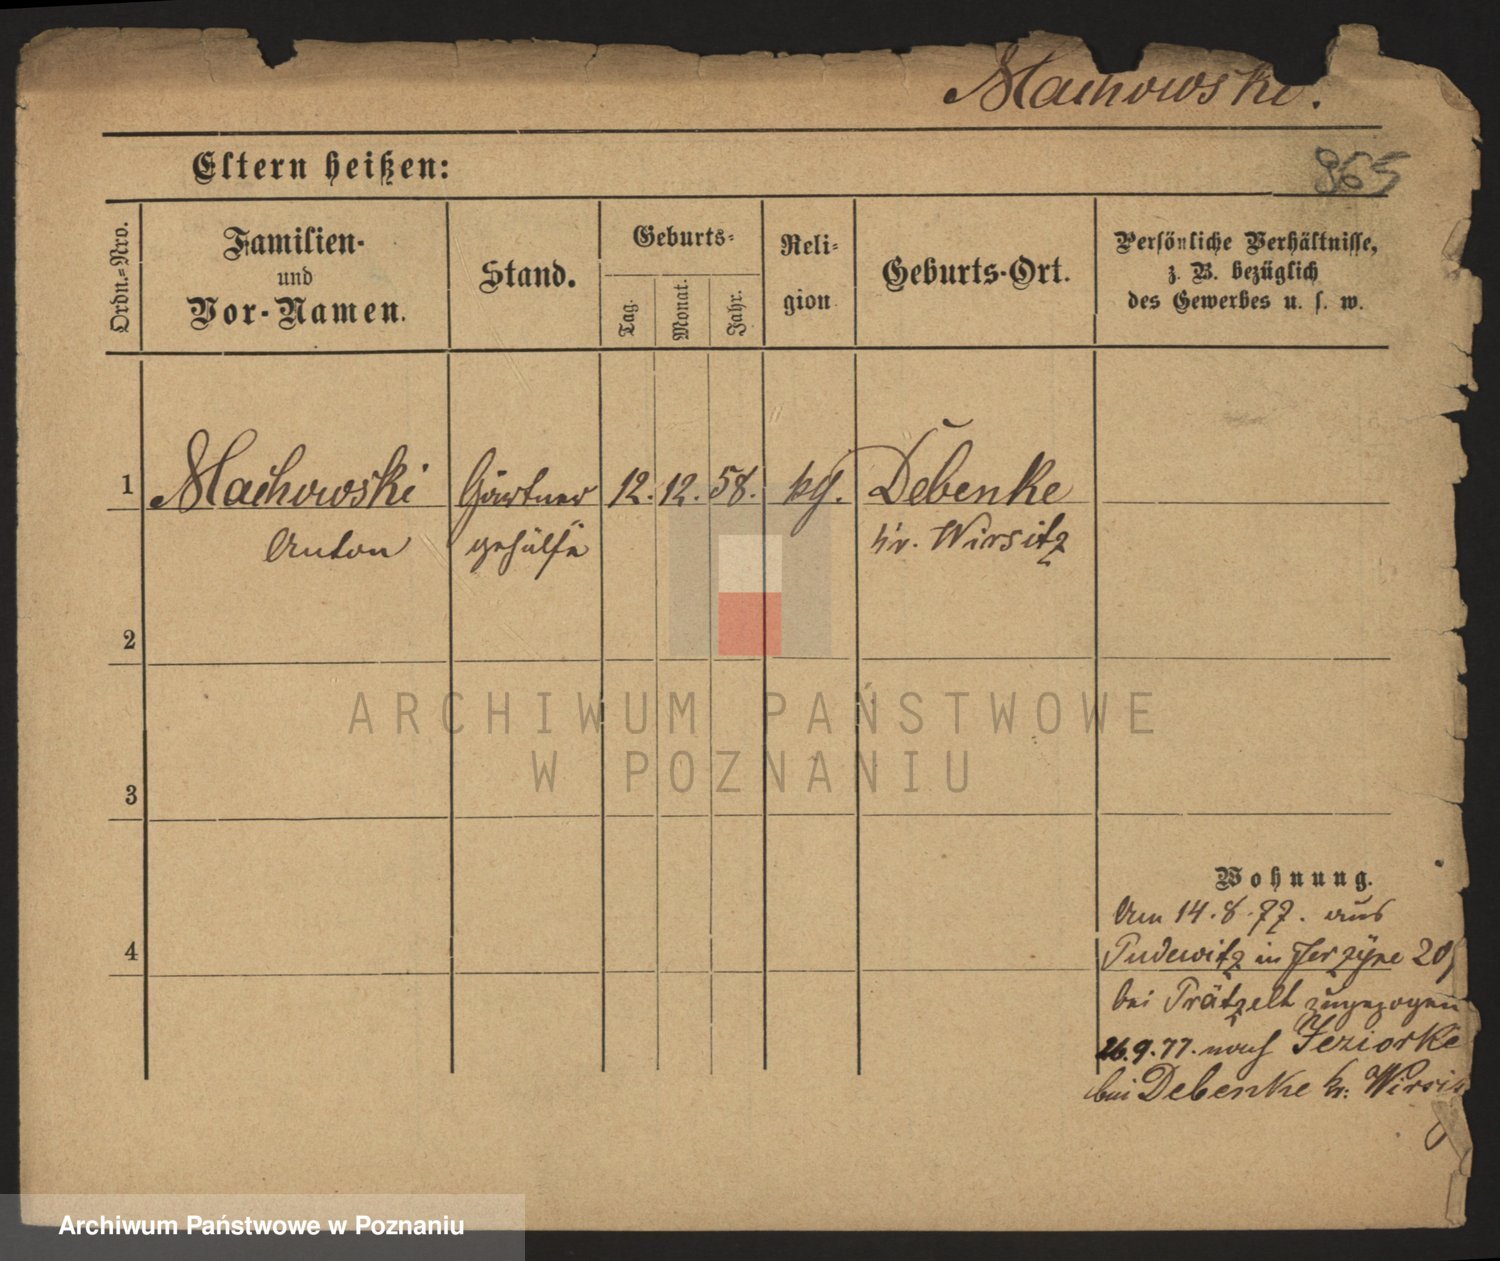 Machowski.
965
Eltern heißen:
Ordn.-Nro.
Familien-
und
Vor-Namen.
Stand.
Geburts-
Tag.
Monat.
Jahr.
Reli-
gion
Geburts-Ort.
Persönliche Verhältnisse,
z. B. bezüglich
des Gewerbes u. s. w.
1 Machowski Gärtner 12. 12. 58. kg. Debenke
Anton gehülfe kr. Wirsitz
2
3
4
Wohnung.
Am 14.8.77. aus
Pudewitz in Jerzyce 20
bei Prätzelt zugezogen
26.9.77. nach Jeziorke
bei Debenke kr. Wirsitz
ARCHIWUM PAŃSTWOWE
W POZNANIU
Archiwum Państwowe w Poznaniu